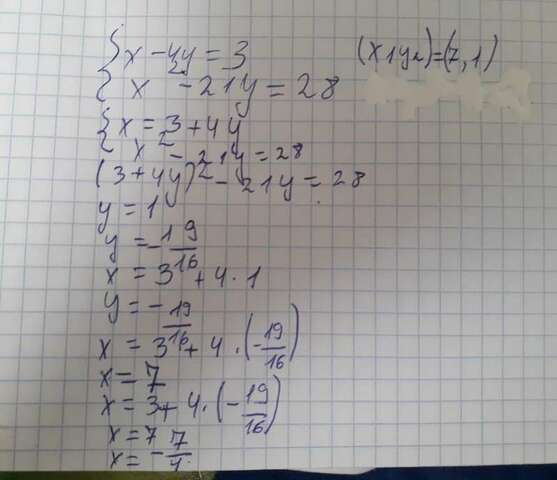 { x - 4y = 3
{ x² - 21y = 28
(x1y1)=(7,1)
{ x = 3+4y
{ x² - 21y = 28
(3+4y)² - 21y = 28
y = 1
y = -19/16
x = 3 + 4 · 1
y = - 19/16
x = 3 + 4 · (-19/16)
x = 7
x = 3+ 4 · (-19/16)
x = 7
x = - 7/4